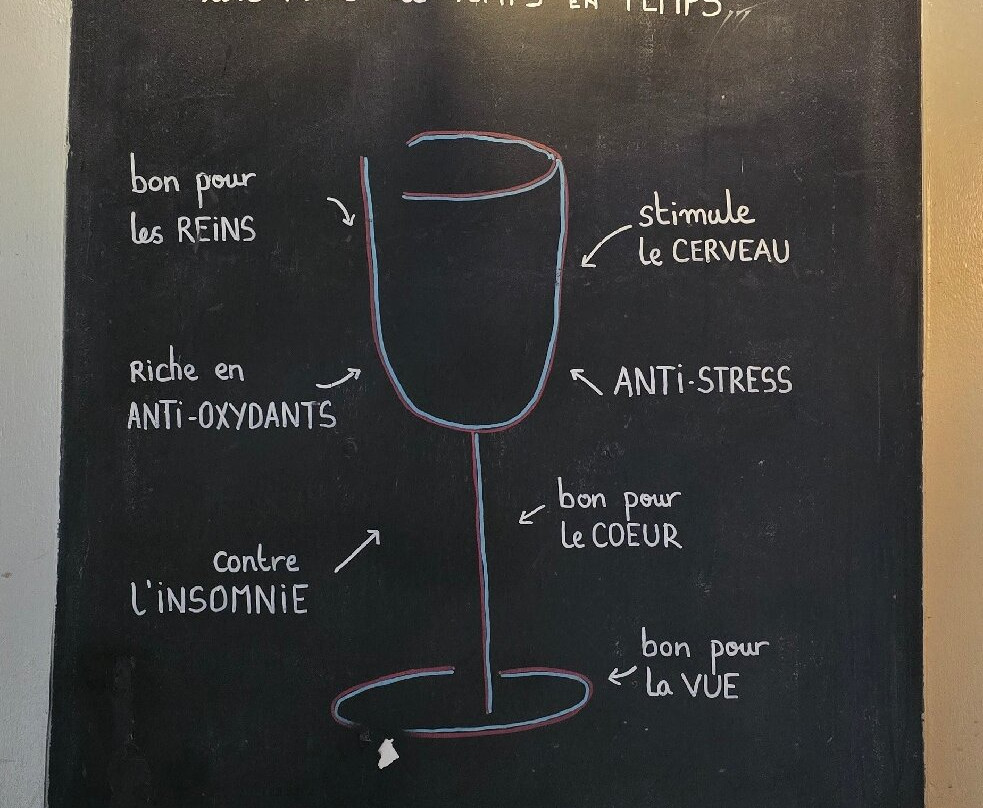 TEMPS EN TEMPS
bon pour
les REiNS
stimule
le CERVEAU
Riche en
ANTi-OXYDANTS
ANTi-STRESS
bon pour
le COEUR
contre
l'iNSOMNiE
bon pour
la VUE